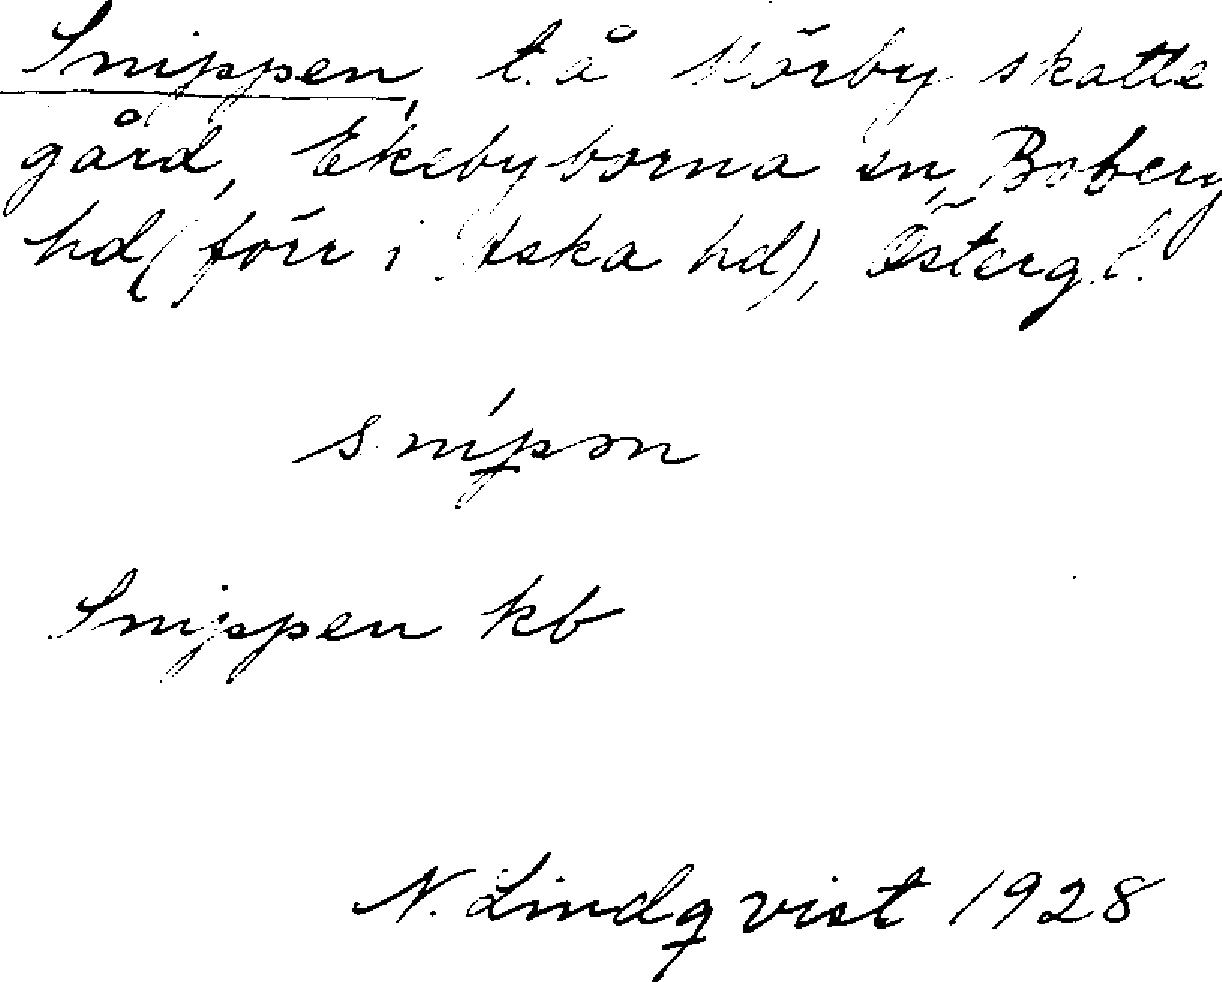 Snippen, t. å Körby skatte
gård, Ekebyborna sn, Boberg
hd (förr i Aska hd), Österg. l.
snípən
Snippen kb
N. Lindqvist 1928